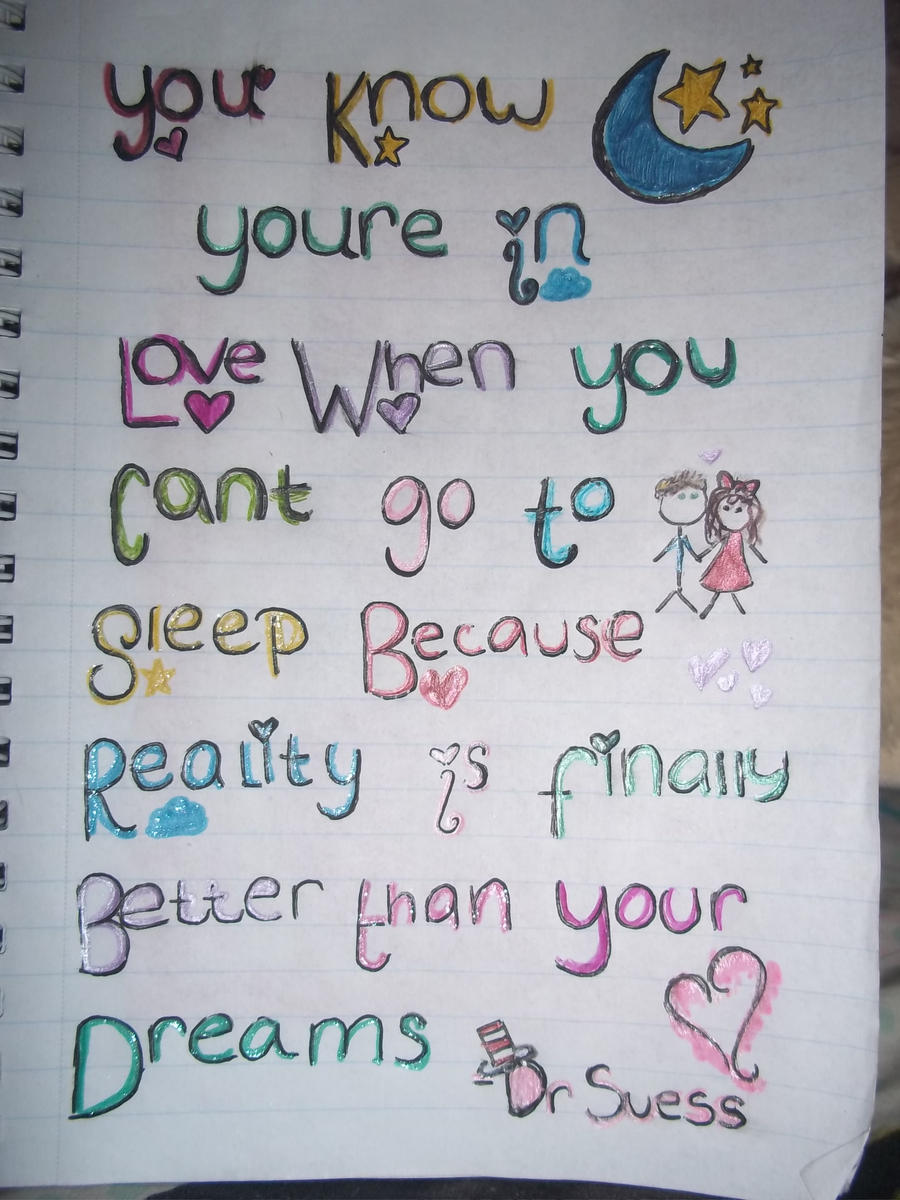 you Know
youre in
Love When you
Cant go to
Sleep Because
Reality is finally
Better than your
Dreams
Dr Suess